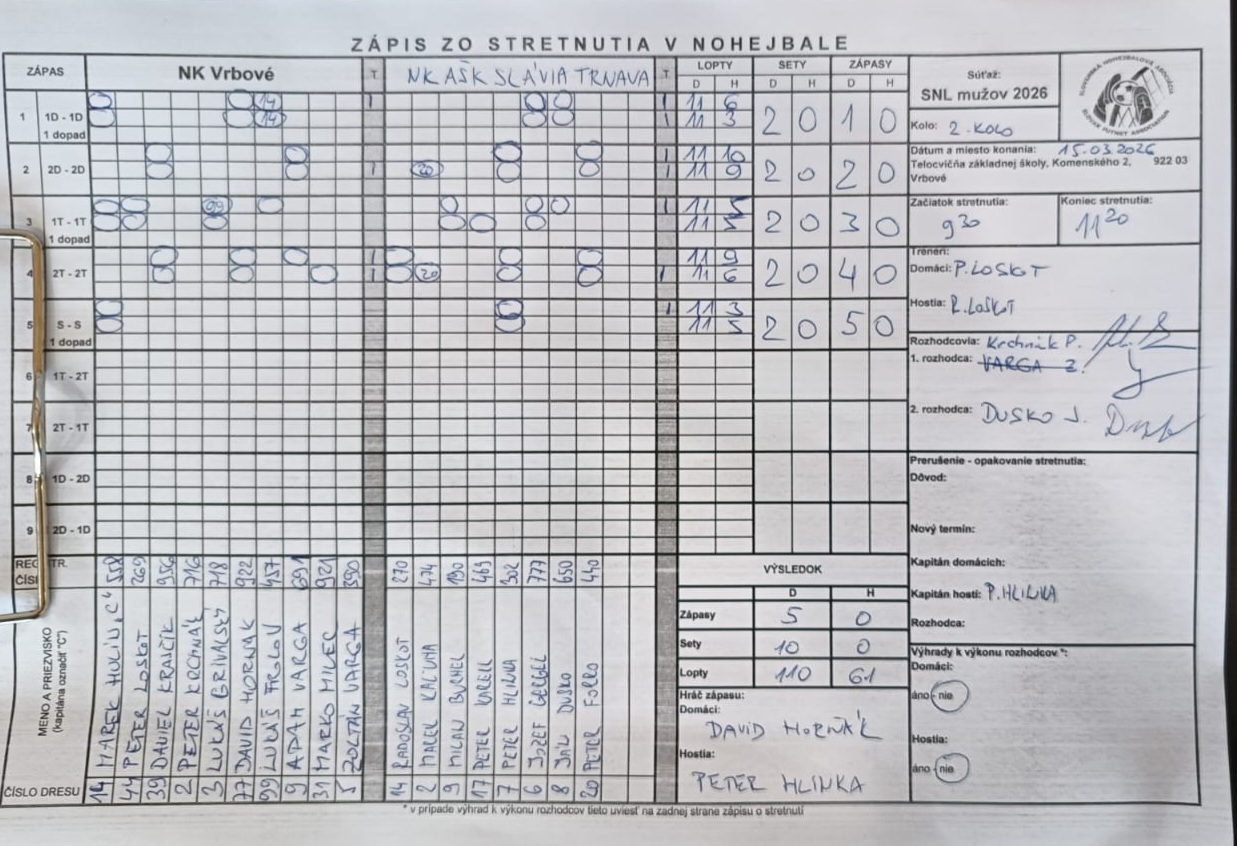 ZÁPIS ZO STRETNUTIA V NOHEJBALE
ZÁPAS NK Vrbové T NK AŠK SLÁVIA TRNAVA T LOPTY SETY ZÁPASY
D H D H D H
1 1D - 1D 1 dopad 14 14 11 6 11 3 2 0 1 0
2 2D - 2D 20 11 10 11 9 2 0 2 0
3 1T - 1T 1 dopad 99 11 5 11 5 2 0 3 0
4 2T - 2T 20 11 9 11 6 2 0 4 0
5 S - S 1 dopad 11 3 11 5 2 0 5 0
6 1T - 2T
7 2T - 1T
8 1D - 2D
9 2D - 1D
Súťaž:
SNL mužov 2026
Kolo: 2. KOLO
Dátum a miesto konania: 15.03.2026
Telocvičňa základnej školy, Komenského 2, 922 03
Vrbové
Začiatok stretnutia: 9 30
Koniec stretnutia: 11 20
Tréneri:
Domáci: P. LOSKOT
Hostia: R. LOSKOT
Rozhodcovia: Krchnák P.
1. rozhodca: VARGA Z.
2. rozhodca: DUSKO J.
Prerušenie - opakovanie stretnutia:
Dôvod:
Nový termín:
Kapitán domácich:
Kapitán hostí: P. HLINKA
Rozhodca:
Výhrady k výkonu rozhodcov *:
Domáci:
áno - nie
Hostia:
áno - nie
MENO A PRIEZVISKO
(kapitána označiť "C")
ČÍSLO DRESU
14 MAREK HULIN "C" 518
44 PETER LOSKOT 269
39 DANIEL KRAJČÍK 956
2 PETER KRCHNÁK 716
3 LUKÁŠ 718
77 DAVID HORNÁK 922
99 LUKÁŠ FROLO 457
9 ADAM VARGA 691
31 MARKO MILEC 921
5 ZOLTÁN VARGA 390
14 RADOSLAV LOSKOT 270
2 MAREK KALINA 474
9 MILAN 190
17 PETER KARELL 469
7 PETER HLINKA 302
6 JOZEF GERGEL 777
8 JÁN DUSKO 650
20 PETER FOLRO 440
VÝSLEDOK
D H
Zápasy 5 0
Sety 10 0
Lopty 110 61
Hráč zápasu:
Domáci:
DAVID HORŇÁK
Hostia:
PETER HLINKA
* v prípade výhrad k výkonu rozhodcov tieto uviesť na zadnej strane zápisu o stretnutí